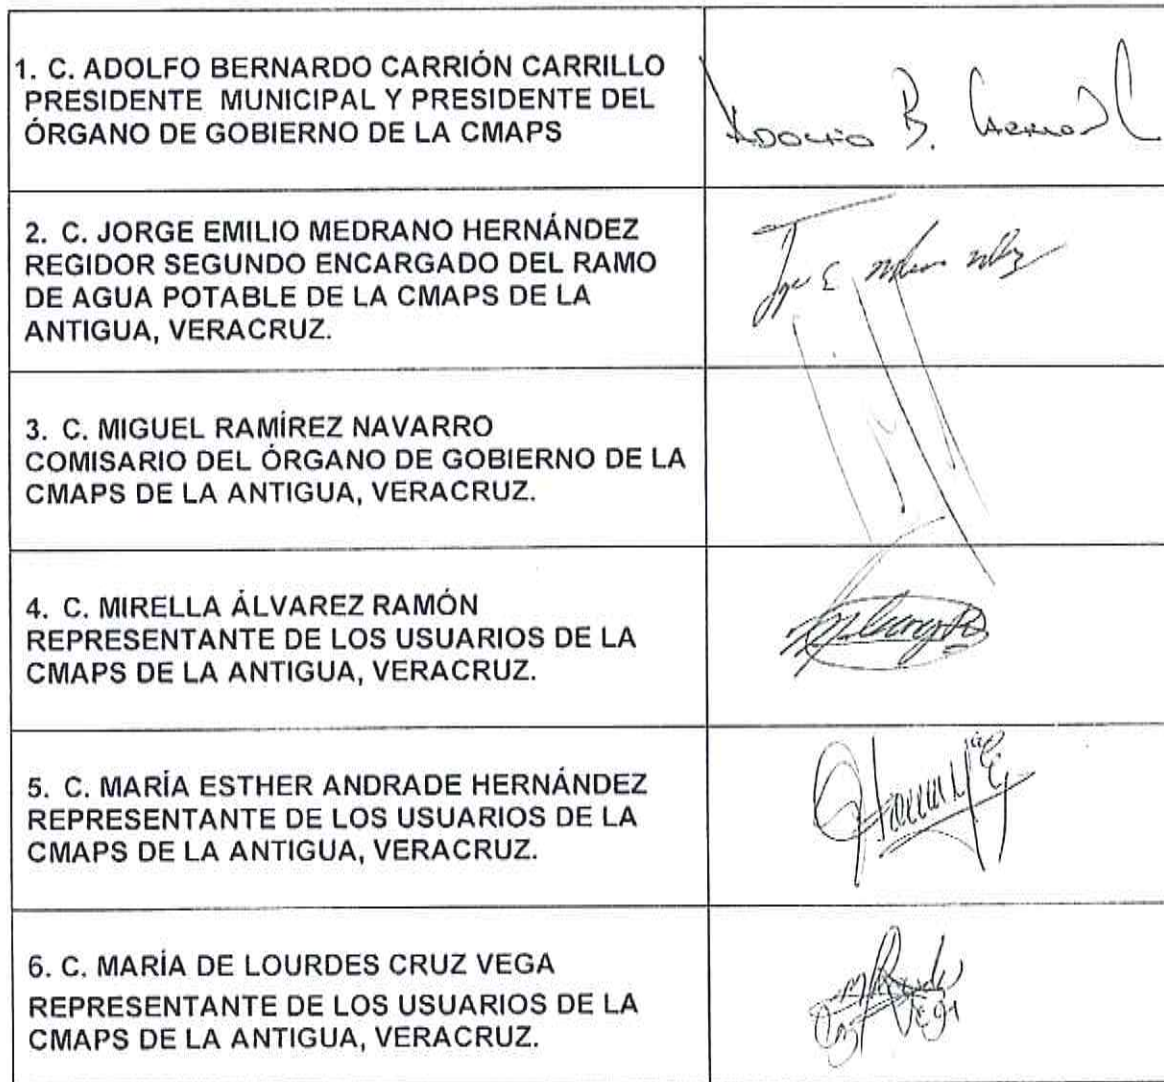 1. C. ADOLFO BERNARDO CARRIÓN CARRILLO
PRESIDENTE MUNICIPAL Y PRESIDENTE DEL
ÓRGANO DE GOBIERNO DE LA CMAPS
Adolfo B. Carrion C
2. C. JORGE EMILIO MEDRANO HERNÁNDEZ
REGIDOR SEGUNDO ENCARGADO DEL RAMO
DE AGUA POTABLE DE LA CMAPS DE LA
ANTIGUA, VERACRUZ.
3. C. MIGUEL RAMÍREZ NAVARRO
COMISARIO DEL ÓRGANO DE GOBIERNO DE LA
CMAPS DE LA ANTIGUA, VERACRUZ.
4. C. MIRELLA ÁLVAREZ RAMÓN
REPRESENTANTE DE LOS USUARIOS DE LA
CMAPS DE LA ANTIGUA, VERACRUZ.
5. C. MARÍA ESTHER ANDRADE HERNÁNDEZ
REPRESENTANTE DE LOS USUARIOS DE LA
CMAPS DE LA ANTIGUA, VERACRUZ.
6. C. MARÍA DE LOURDES CRUZ VEGA
REPRESENTANTE DE LOS USUARIOS DE LA
CMAPS DE LA ANTIGUA, VERACRUZ.